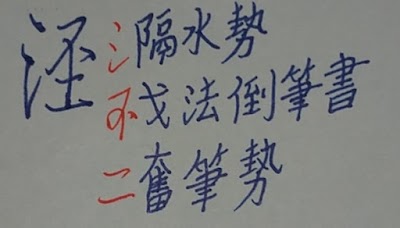 氵隔水勢
不戈法倒筆書
二奮筆勢